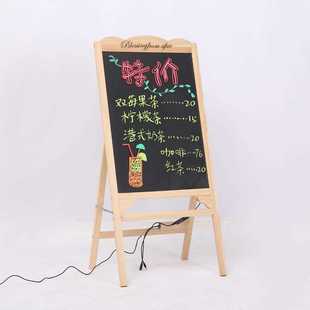 Blessing from afar
特价
双莓果茶......20
柠檬茶......15
港式奶茶....20
咖啡...16
红茶....20